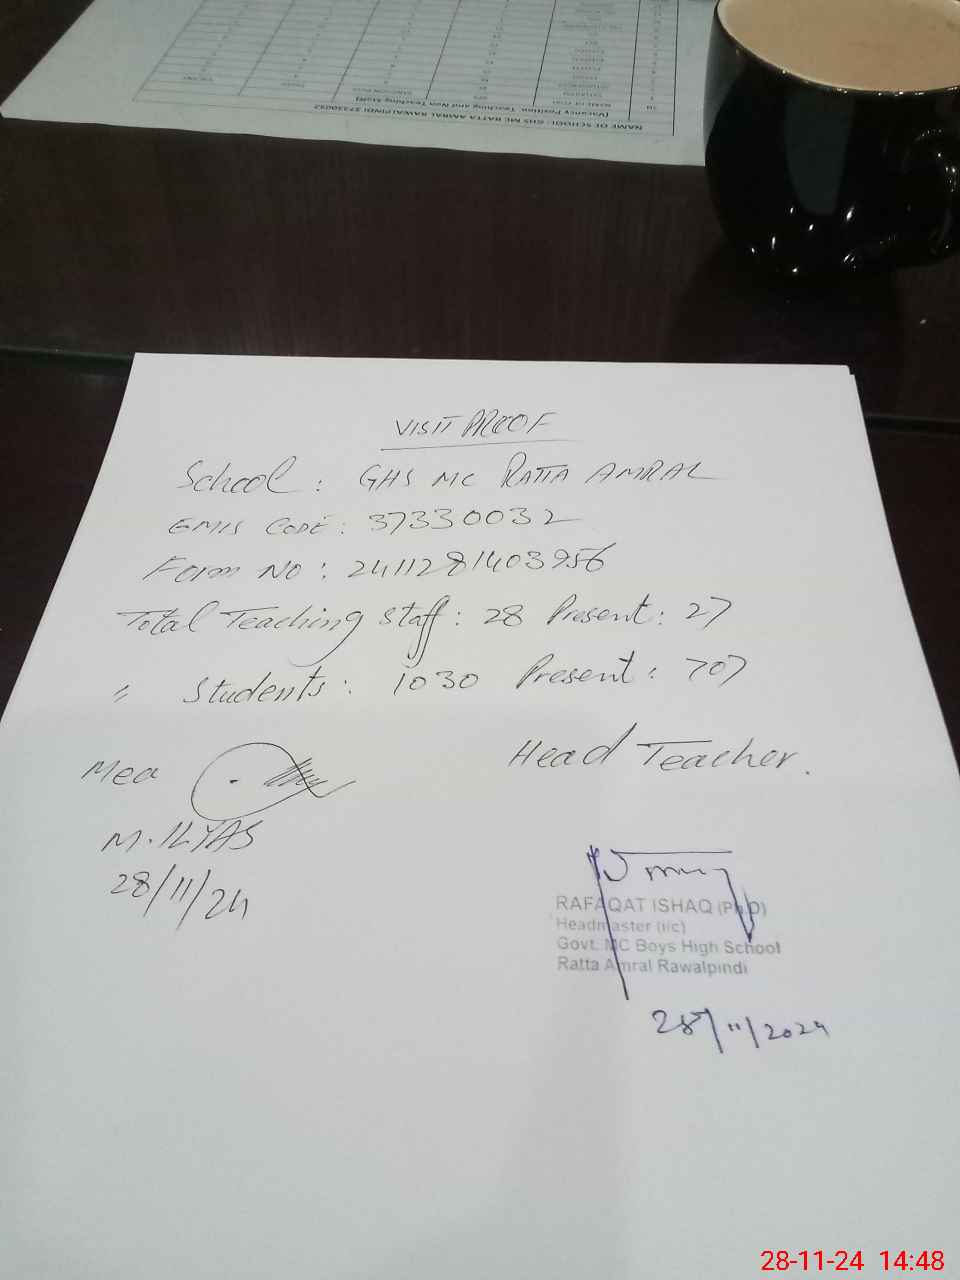 NAME OF SCHOOL: GHS MC RATTA AMRAL RAWALPINDI 37330032
(Vacancy Position, Teaching and Non Teaching Staff)
VISIT PROOF
School : GHS MC RATTA AMRAL
EMIS CODE : 37330032
Form NO : 2411281403956
Total Teaching Staff : 28 Present : 27
" Students : 1030 Present : 707
Mea
Head Teacher.
M. ILYAS
28/11/24
RAFAQAT ISHAQ (Ph.D)
Headmaster (i/c)
Govt. MC Boys High School
Ratta Amral Rawalpindi
28/11/2024
28-11-24 14:48